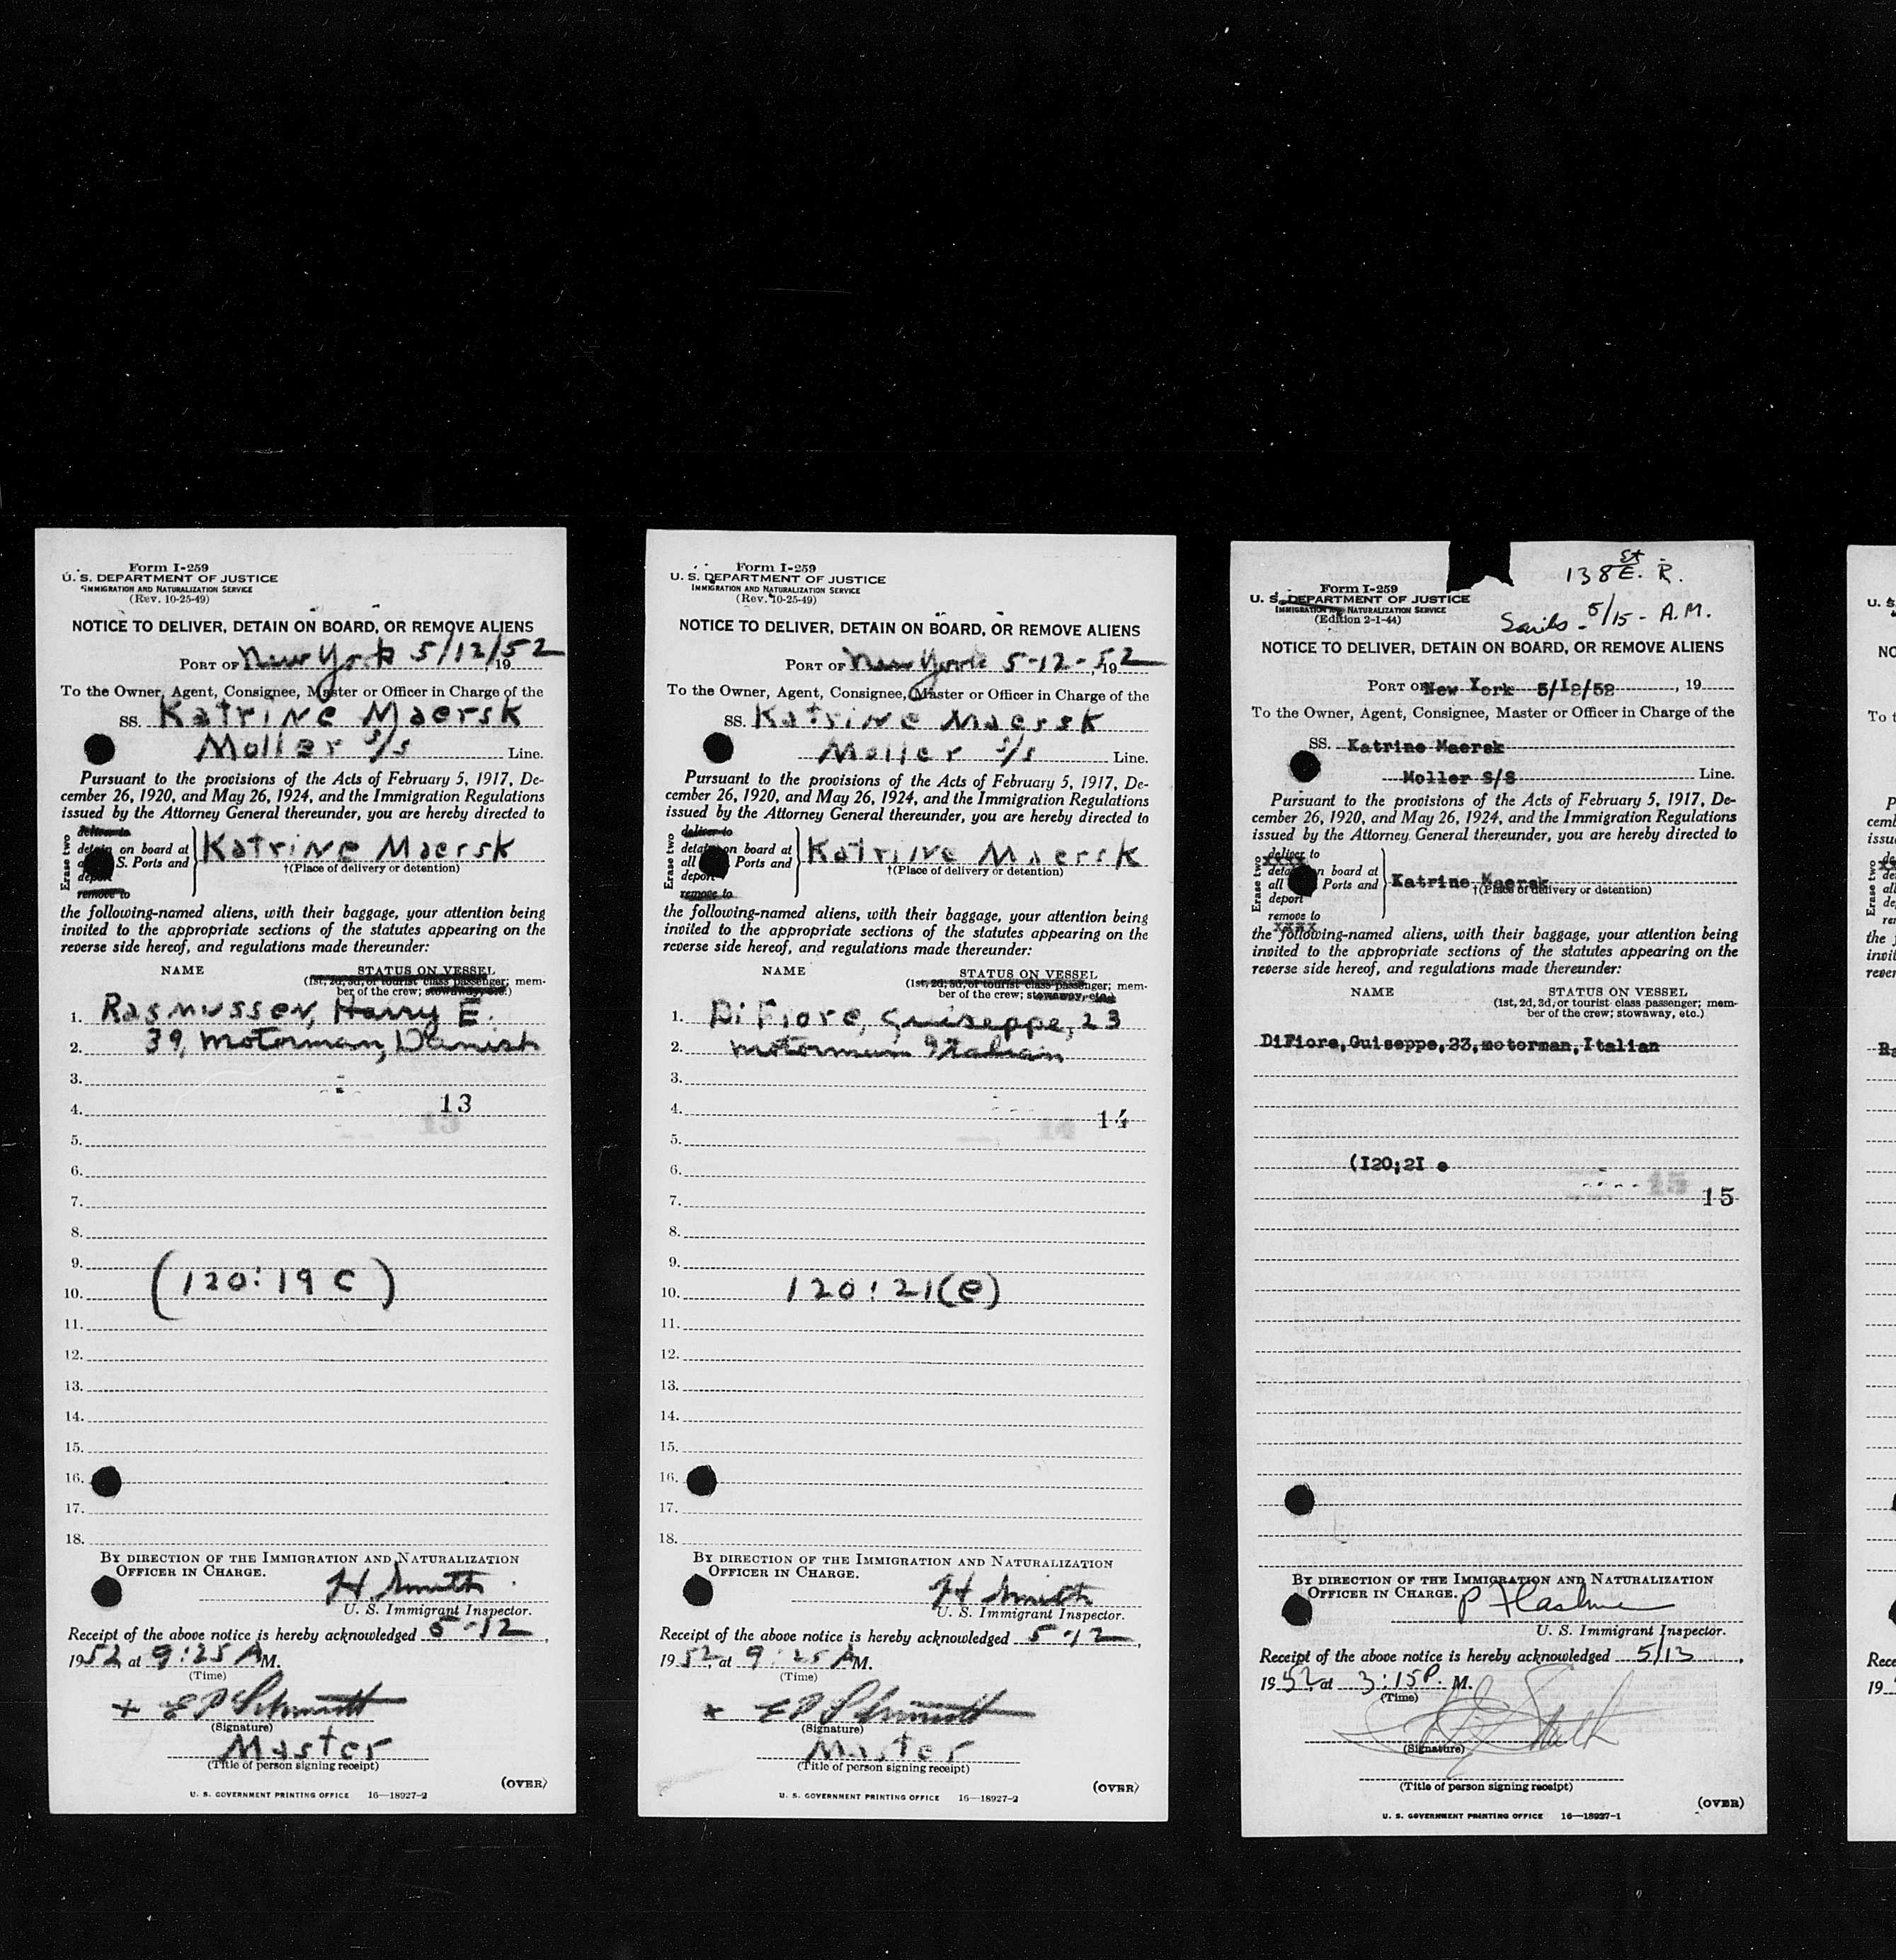 Form I-259
U. S. DEPARTMENT OF JUSTICE
IMMIGRATION AND NATURALIZATION SERVICE
(Rev. 10-25-49)
NOTICE TO DELIVER, DETAIN ON BOARD, OR REMOVE ALIENS
PORT OF New York 5/12/52, 19
To the Owner, Agent, Consignee, Master or Officer in Charge of the
SS. Katrine Maersk
Moller S/S Line.
Pursuant to the provisions of the Acts of February 5, 1917, De-
cember 26, 1920, and May 26, 1924, and the Immigration Regulations
issued by the Attorney General thereunder, you are hereby directed to
Erase two
deliver to
detain on board at
S. Ports and
deport
remove to
Katrine Maersk
†(Place of delivery or detention)
the following-named aliens, with their baggage, your attention being
invited to the appropriate sections of the statutes appearing on the
reverse side hereof, and regulations made thereunder:
NAME STATUS ON VESSEL
(1st, 2d, 3d, or tourist class passenger; mem-
ber of the crew; stowaway, etc.)
1. Rasmussen, Harry E.
2. 39, Motorman, Danish
3.
13
4.
5.
6.
7.
8.
9.
(120:19 C)
10.
11.
12.
13.
14.
15.
16.
17.
18.
BY DIRECTION OF THE IMMIGRATION AND NATURALIZATION
OFFICER IN CHARGE.
H Smith
U. S. Immigrant Inspector.
Receipt of the above notice is hereby acknowledged 5-12,
1952, at 9:25 A M.
(Time)
+ E P Schmidt
(Signature)
Master
(Title of person signing receipt)
(OVER)
U. S. GOVERNMENT PRINTING OFFICE 16—18927-2
Form I-259
U. S. DEPARTMENT OF JUSTICE
IMMIGRATION AND NATURALIZATION SERVICE
(Rev. 10-25-49)
NOTICE TO DELIVER, DETAIN ON BOARD, OR REMOVE ALIENS
PORT OF New York 5-12-52, 19
To the Owner, Agent, Consignee, Master or Officer in Charge of the
SS. Katrine Maersk
Moller S/S Line.
Pursuant to the provisions of the Acts of February 5, 1917, De-
cember 26, 1920, and May 26, 1924, and the Immigration Regulations
issued by the Attorney General thereunder, you are hereby directed to
Erase two
deliver to
detain on board at
all Ports and
deport
remove to
Katrine Maersk
†(Place of delivery or detention)
the following-named aliens, with their baggage, your attention being
invited to the appropriate sections of the statutes appearing on the
reverse side hereof, and regulations made thereunder:
NAME STATUS ON VESSEL
(1st, 2d, 3d, or tourist class passenger; mem-
ber of the crew; stowaway, etc.)
1. Di Fiore, Guiseppe, 23
2. motorman Italian
3.
4.
14
5.
6.
7.
8.
9.
10. 120:21(e)
11.
12.
13.
14.
15.
16.
17.
18.
BY DIRECTION OF THE IMMIGRATION AND NATURALIZATION
OFFICER IN CHARGE.
H Smith
U. S. Immigrant Inspector.
Receipt of the above notice is hereby acknowledged 5-12,
1952, at 9:25 A M.
(Time)
x E P Schmidt
(Signature)
Master
(Title of person signing receipt)
(OVER)
U. S. GOVERNMENT PRINTING OFFICE 16—18927-2
138 St E. R.
Sails - 5/15 - A.M.
Form I-259
U. S. DEPARTMENT OF JUSTICE
IMMIGRATION AND NATURALIZATION SERVICE
(Edition 2-1-44)
NOTICE TO DELIVER, DETAIN ON BOARD, OR REMOVE ALIENS
PORT OF New York 5/I2/52, 19
To the Owner, Agent, Consignee, Master or Officer in Charge of the
SS. Katrine Maersk
Moller S/S Line.
Pursuant to the provisions of the Acts of February 5, 1917, De-
cember 26, 1920, and May 26, 1924, and the Immigration Regulations
issued by the Attorney General thereunder, you are hereby directed to
Erase two
deliver to
detain on board at
all Ports and
deport
remove to
Katrine Maersk
†(Place of delivery or detention)
the following-named aliens, with their baggage, your attention being
invited to the appropriate sections of the statutes appearing on the
reverse side hereof, and regulations made thereunder:
NAME STATUS ON VESSEL
(1st, 2d, 3d, or tourist class passenger; mem-
ber of the crew; stowaway, etc.)
DiFiore,Guiseppe,23,motorman,Italian
(I20;2I e
15
BY DIRECTION OF THE IMMIGRATION AND NATURALIZATION
OFFICER IN CHARGE.
U. S. Immigrant Inspector.
Receipt of the above notice is hereby acknowledged 5/13,
1952, at 3:15 P. M.
(Time)
(Signature)
(Title of person signing receipt)
(OVER)
U. S. GOVERNMENT PRINTING OFFICE 16—18927-1